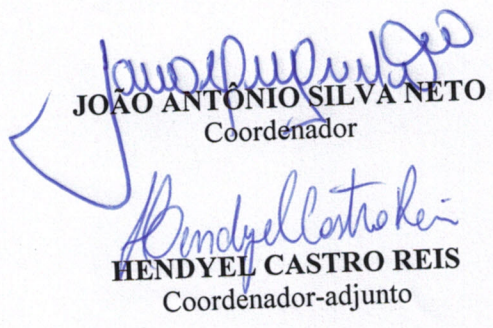 JOÃO ANTÔNIO SILVA NETO
Coordenador
Hendyel Castro Reis
HENDYEL CASTRO REIS
Coordenador-adjunto